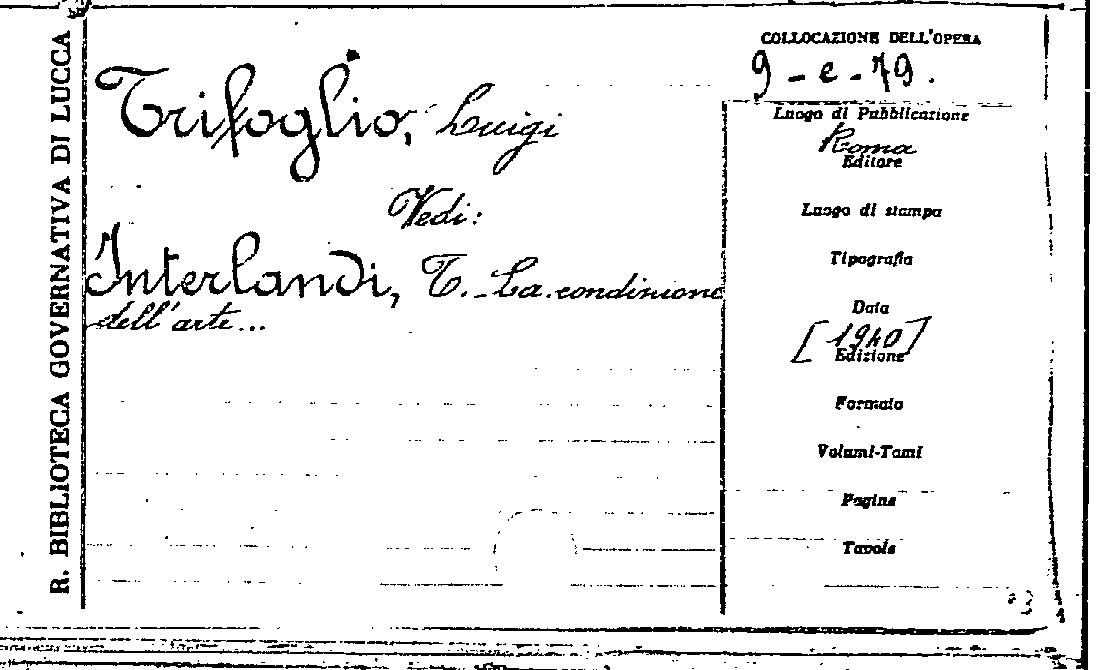 R. BIBLIOTECA GOVERNATIVA DI LUCCA
Trifoglio, Luigi
Vedi:
Interlandi, T. - La condizione
dell'arte...
COLLOCAZIONE DELL'OPERA
9 - e - 79.
Luogo di Pubblicazione
Roma
Editore
Luogo di stampa
Tipografia
Data
[1940]
Edizione
Formato
Volumi-Tomi
Pagine
Tavole